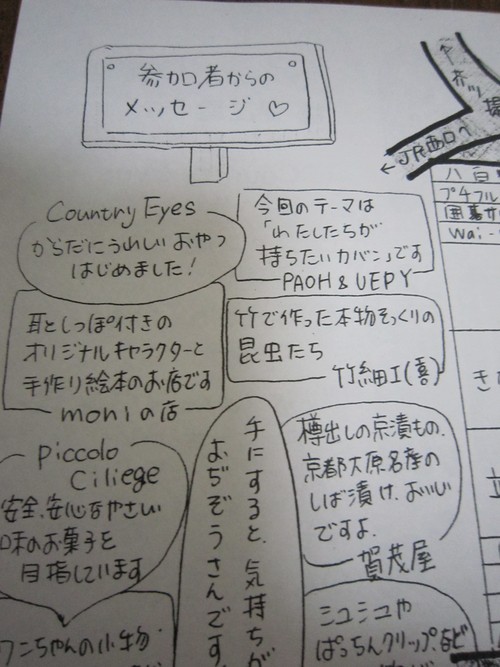 参加者からの
メッセージ♡
JR西口へ
Country Eyes
からだにうれしいおやつ
はじめました!
今回のテーマは
「わたしたちが
持ちたいカバン」です
PAOH & UEPY
耳としっぽ付きの
オリジナルキャラクターと
手作り絵本のお店です
moniの店
竹で作った本物そっくりの
昆虫たち
竹細工(喜)
Piccolo
Ciliege
安全、安心なやさしい
味のお菓子を
目指しています
手にすると、気持ちが
おぢぞうさんです。
樽出しの京漬もの、
京都大原名産の
しば漬け、おいしい
ですよ。
賀茂屋
ワンちゃんの小物・
シュシュや
ぱっちんクリップ、など
八百
プチフル
Wai-